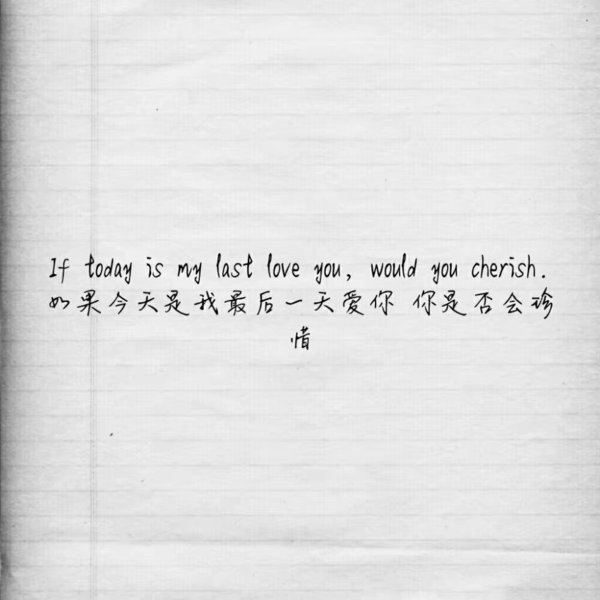 If today is my last love you, would you cherish.
如果今天是我最后一天愛你 你是否会珍
惜